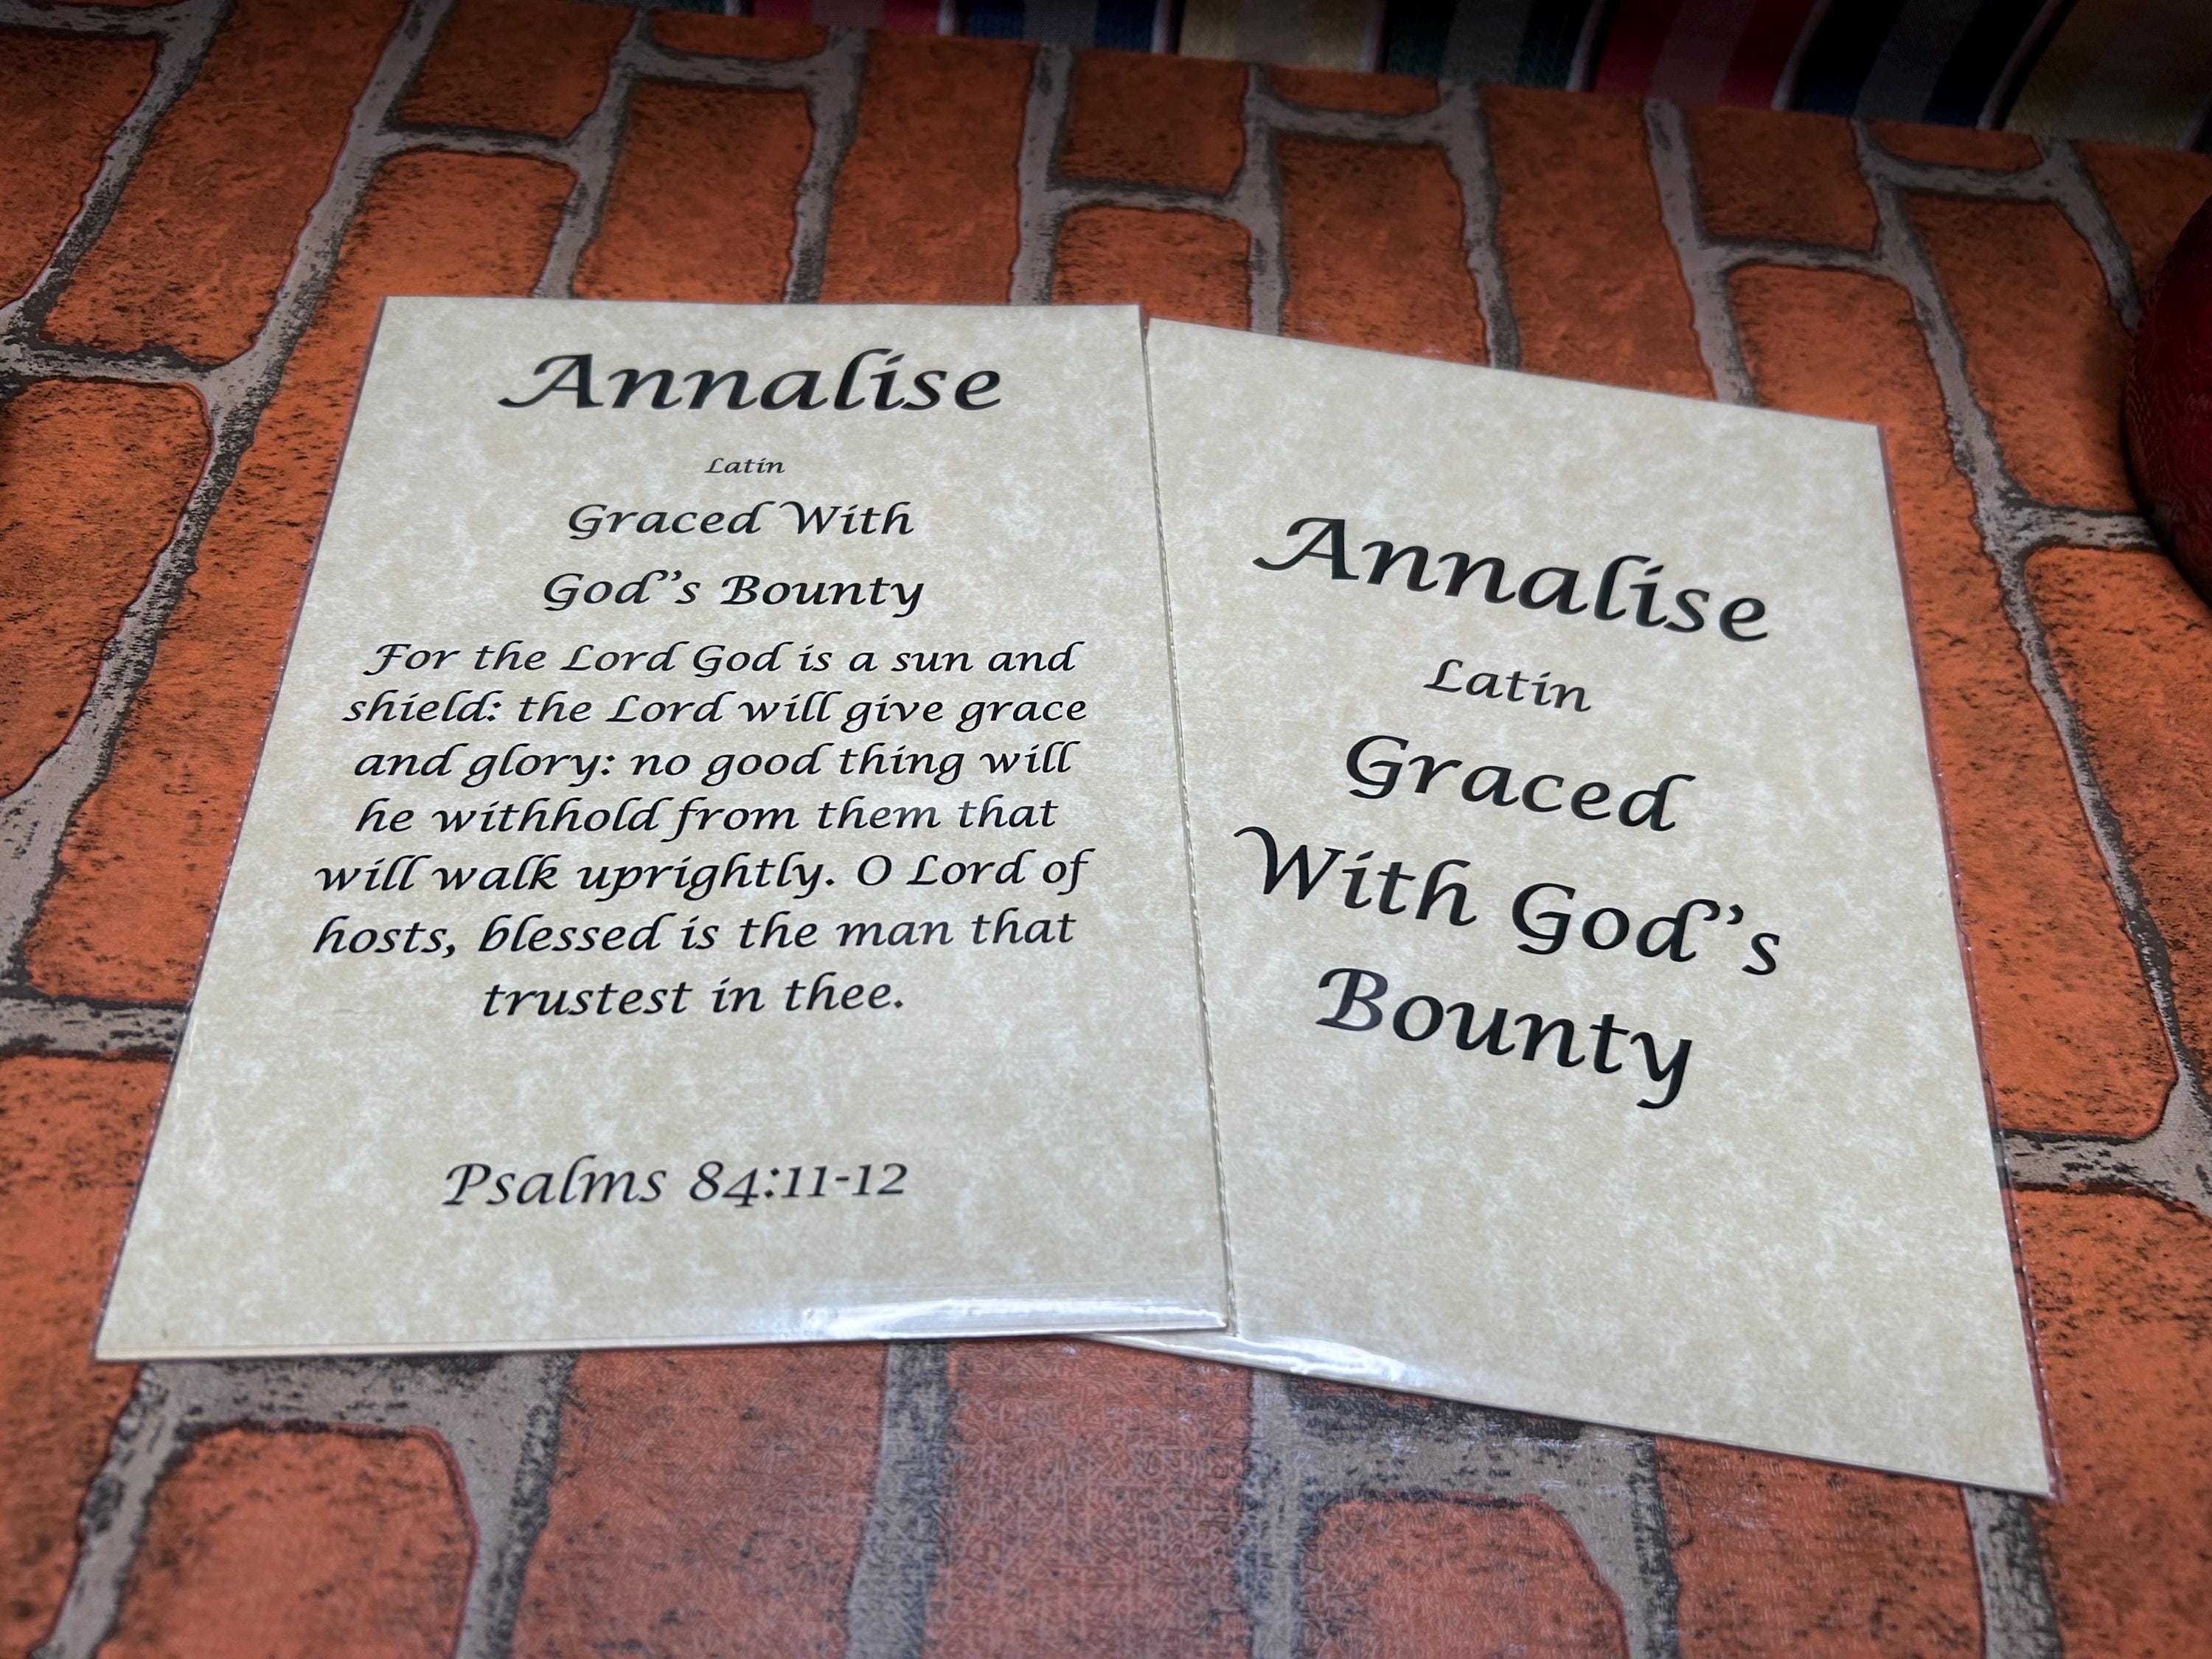 Annalise
Latin
Graced With
God's Bounty
For the Lord God is a sun and
shield: the Lord will give grace
and glory: no good thing will
he withhold from them that
will walk uprightly. O Lord of
hosts, blessed is the man that
trustest in thee.
Psalms 84:11-12
Annalise
Latin
Graced
With God's
Bounty